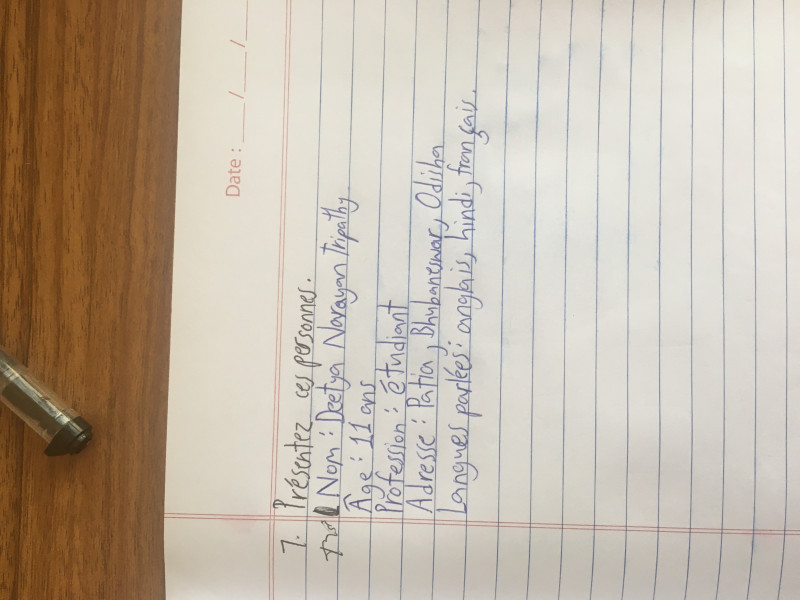 Date : ___/___/___
7. Présentez ces personnes.
Nom : Deetya Narayan Tripathy
Âge : 11 ans
Profession : étudiant
Adresse : Patia, Bhubaneswar, Odisha
Langues parlées : anglais, hindi, français.